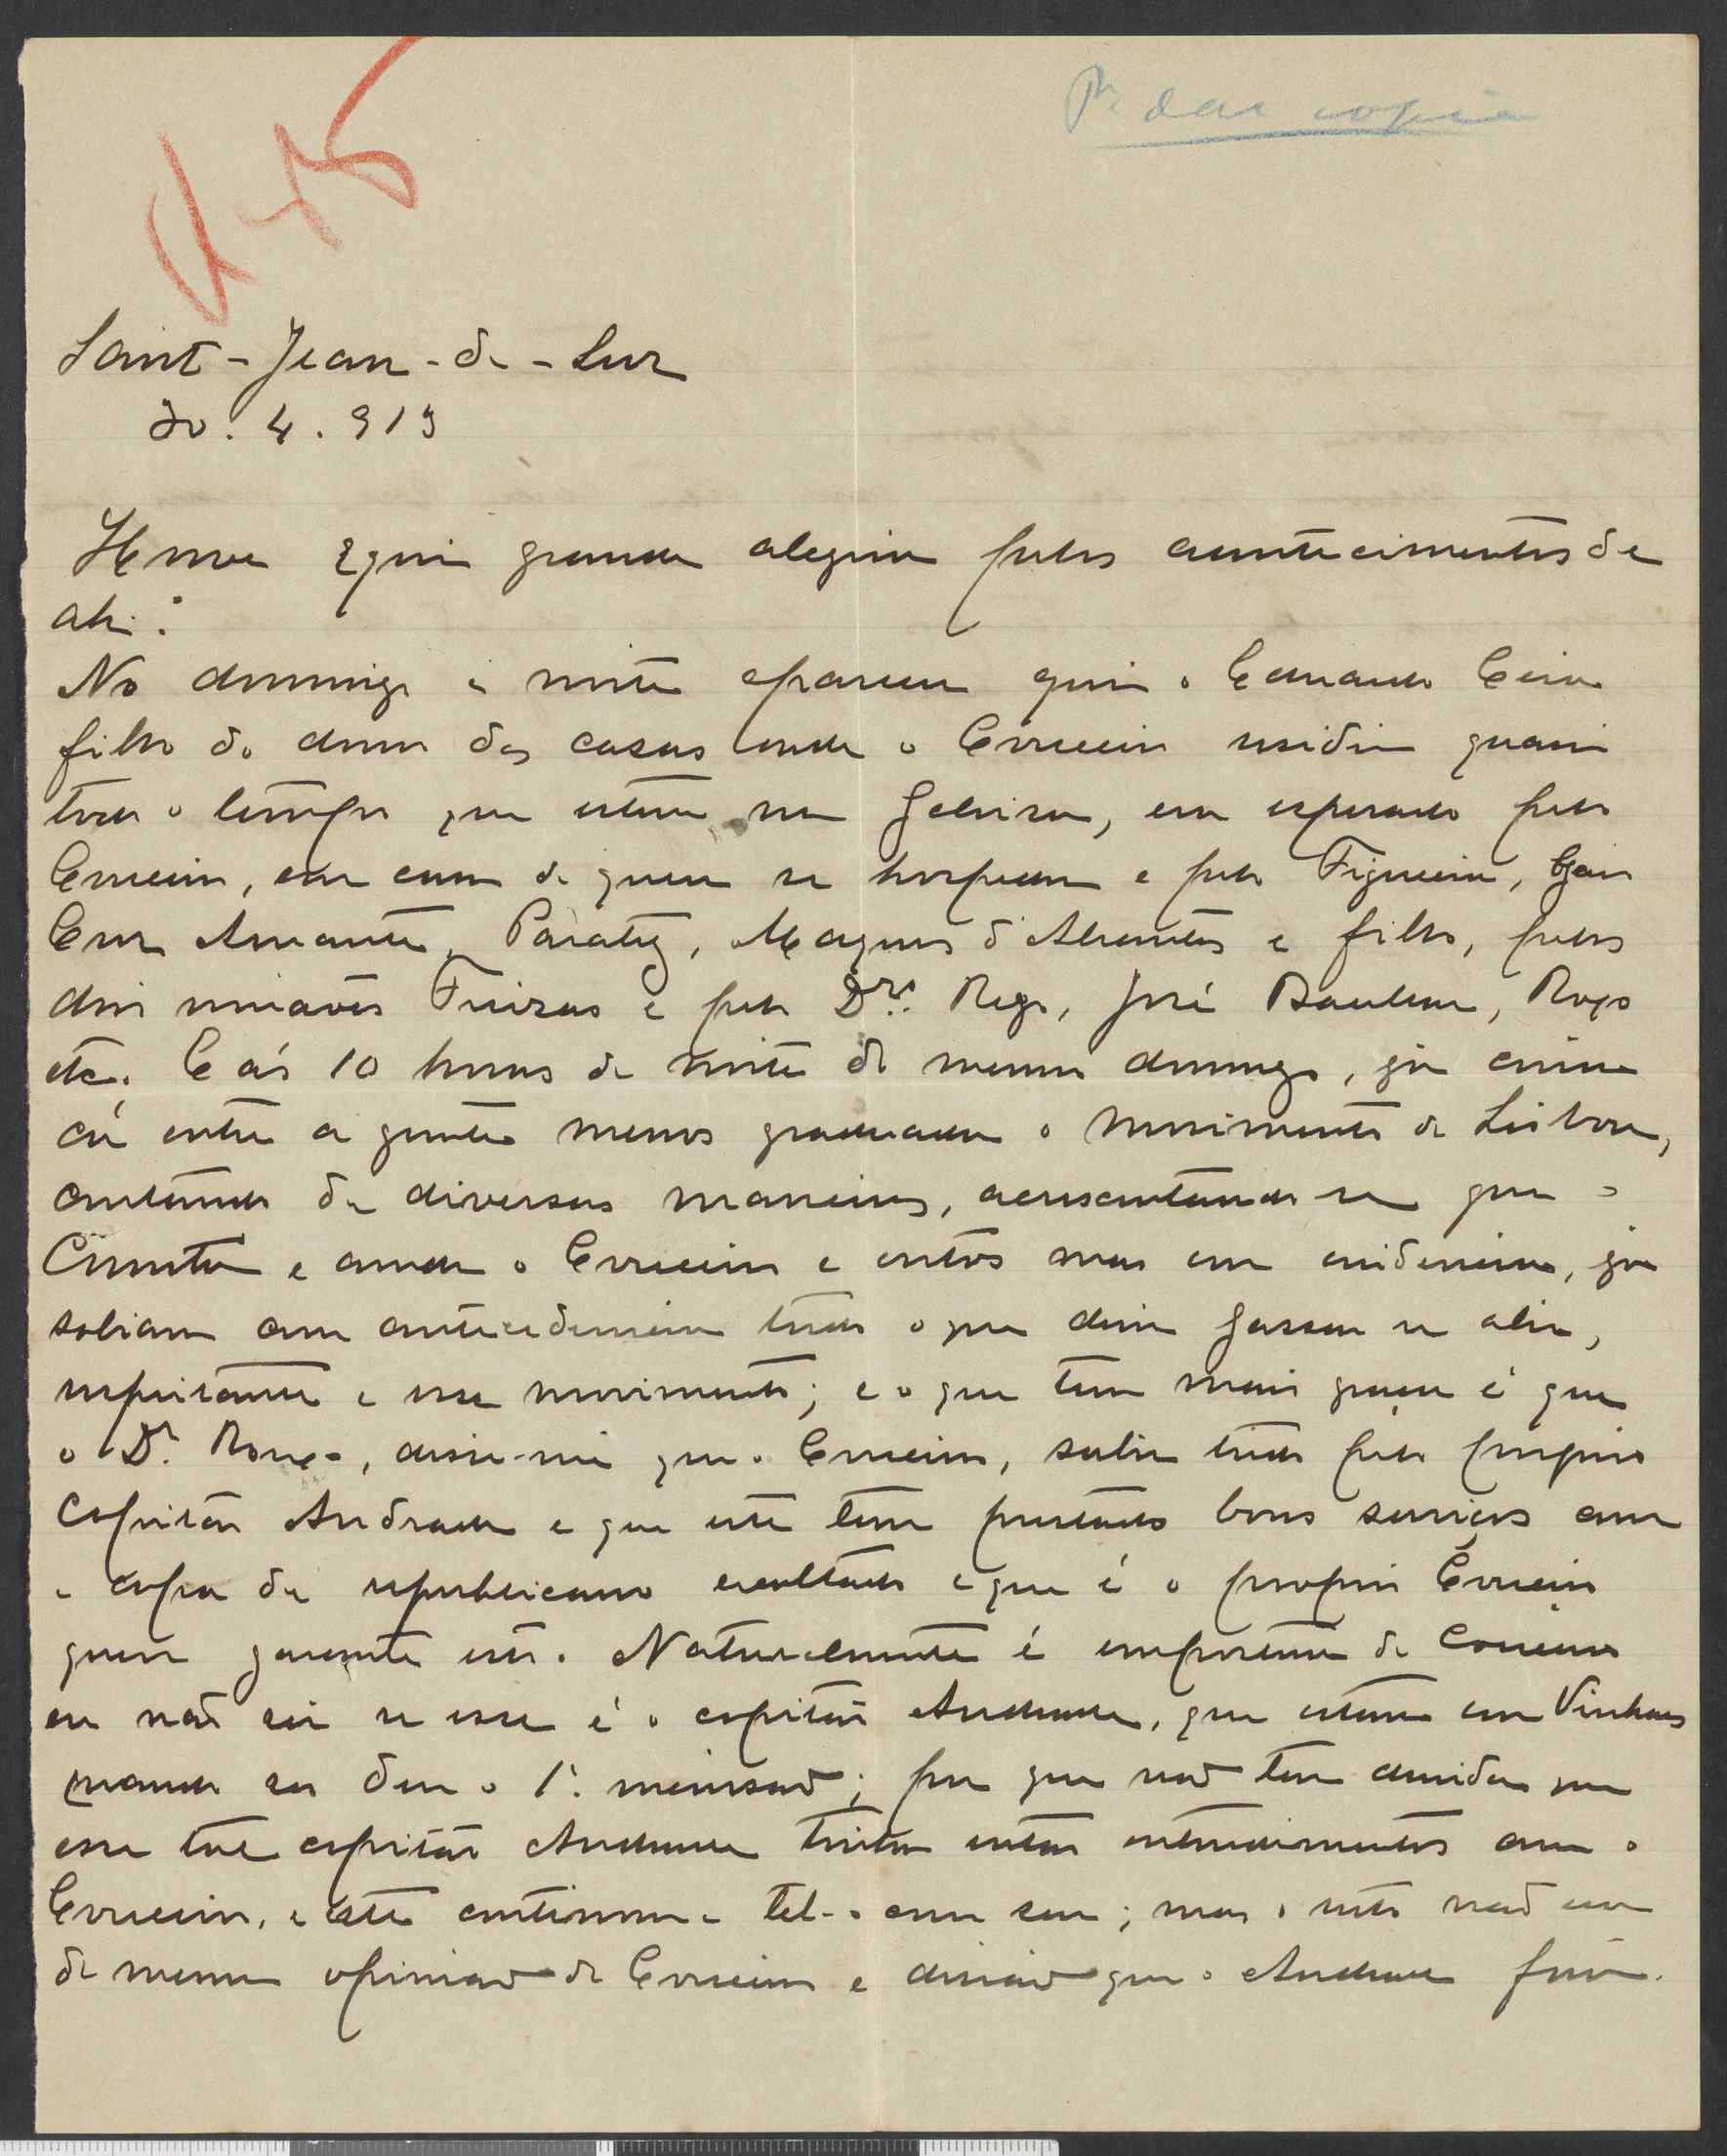 Pa dar copia
Saint-Jean-de-Luz
30.4.913
Houve aqui grande alegria pelos acontecimentos de
ahi.
No domingo á noite apareceu aqui o Eduardo
filho do dono das casas onde o Couceiro residiu quasi
todo o tempo que esteve na Galiza, era esperado pelo
Couceiro, em casa de quem se hospedou e pelo Figueira,
Amante, Paraty, Marquez d'Abrantes e filho, pelos
dois irmãos e pelos Drs. Rego, José Roxo
etc. E ás 10 horas da noite do mesmo domingo, já corria
cá entre a gente menos graduada o movimento de Lisboa,
contando de diversas maneiras, acrescentando-se que o
e ainda o Couceiro e outros mais em evidencia, já
sabiam com antecedencia tudo o que devia passar-se ahi,
respeitante a esse movimento; e o que tem mais graça é que
o Dr. disse-me que o Couceiro, sabia tudo pelo proprio
capitão Andrade e que este tem prestado bons serviços com
a capa de republicano exaltado e que é o proprio Couceiro
quem garante isto. Naturalmente é do Couceiro
eu não sei se esse é o capitão Andrade, que estava em Vinhaes
quando se deu a 1ª incursão; por que não tem duvida que
esse tal capitão Andrade tinha então entendimentos com o
Couceiro, e este continua a tel-o como seu; mas o resto não era
da mesma opinião do Couceiro e diziam que o Andrade